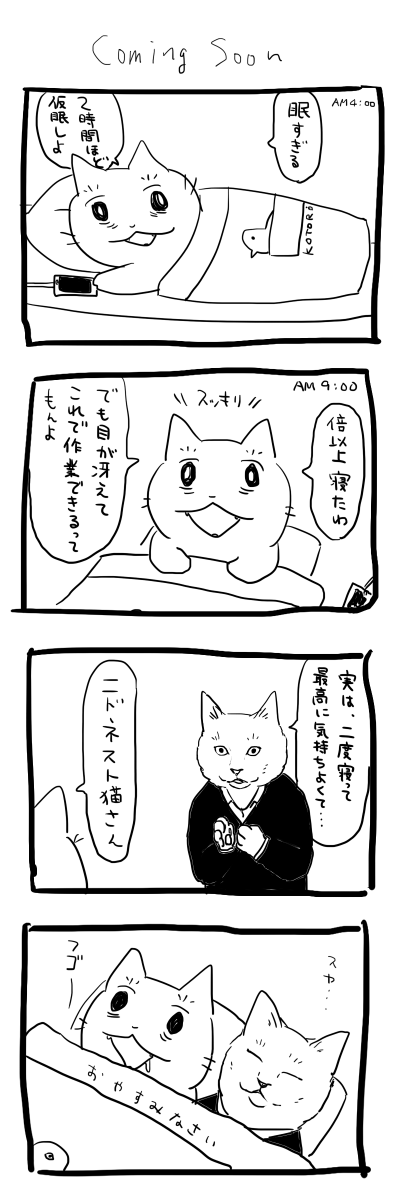 Coming Soon
AM4:00
眠すぎる
2時間ほど
仮眠しよ
KOTORI
AM 9:00
倍以上寝たわ
スッキリ
でも目が冴えて
これで作業できるって
もんよ
実は、二度寝って
最高に気持ちよくて…
ニドネスト猫さん
スヤ…
フゴー
おやすみなさい